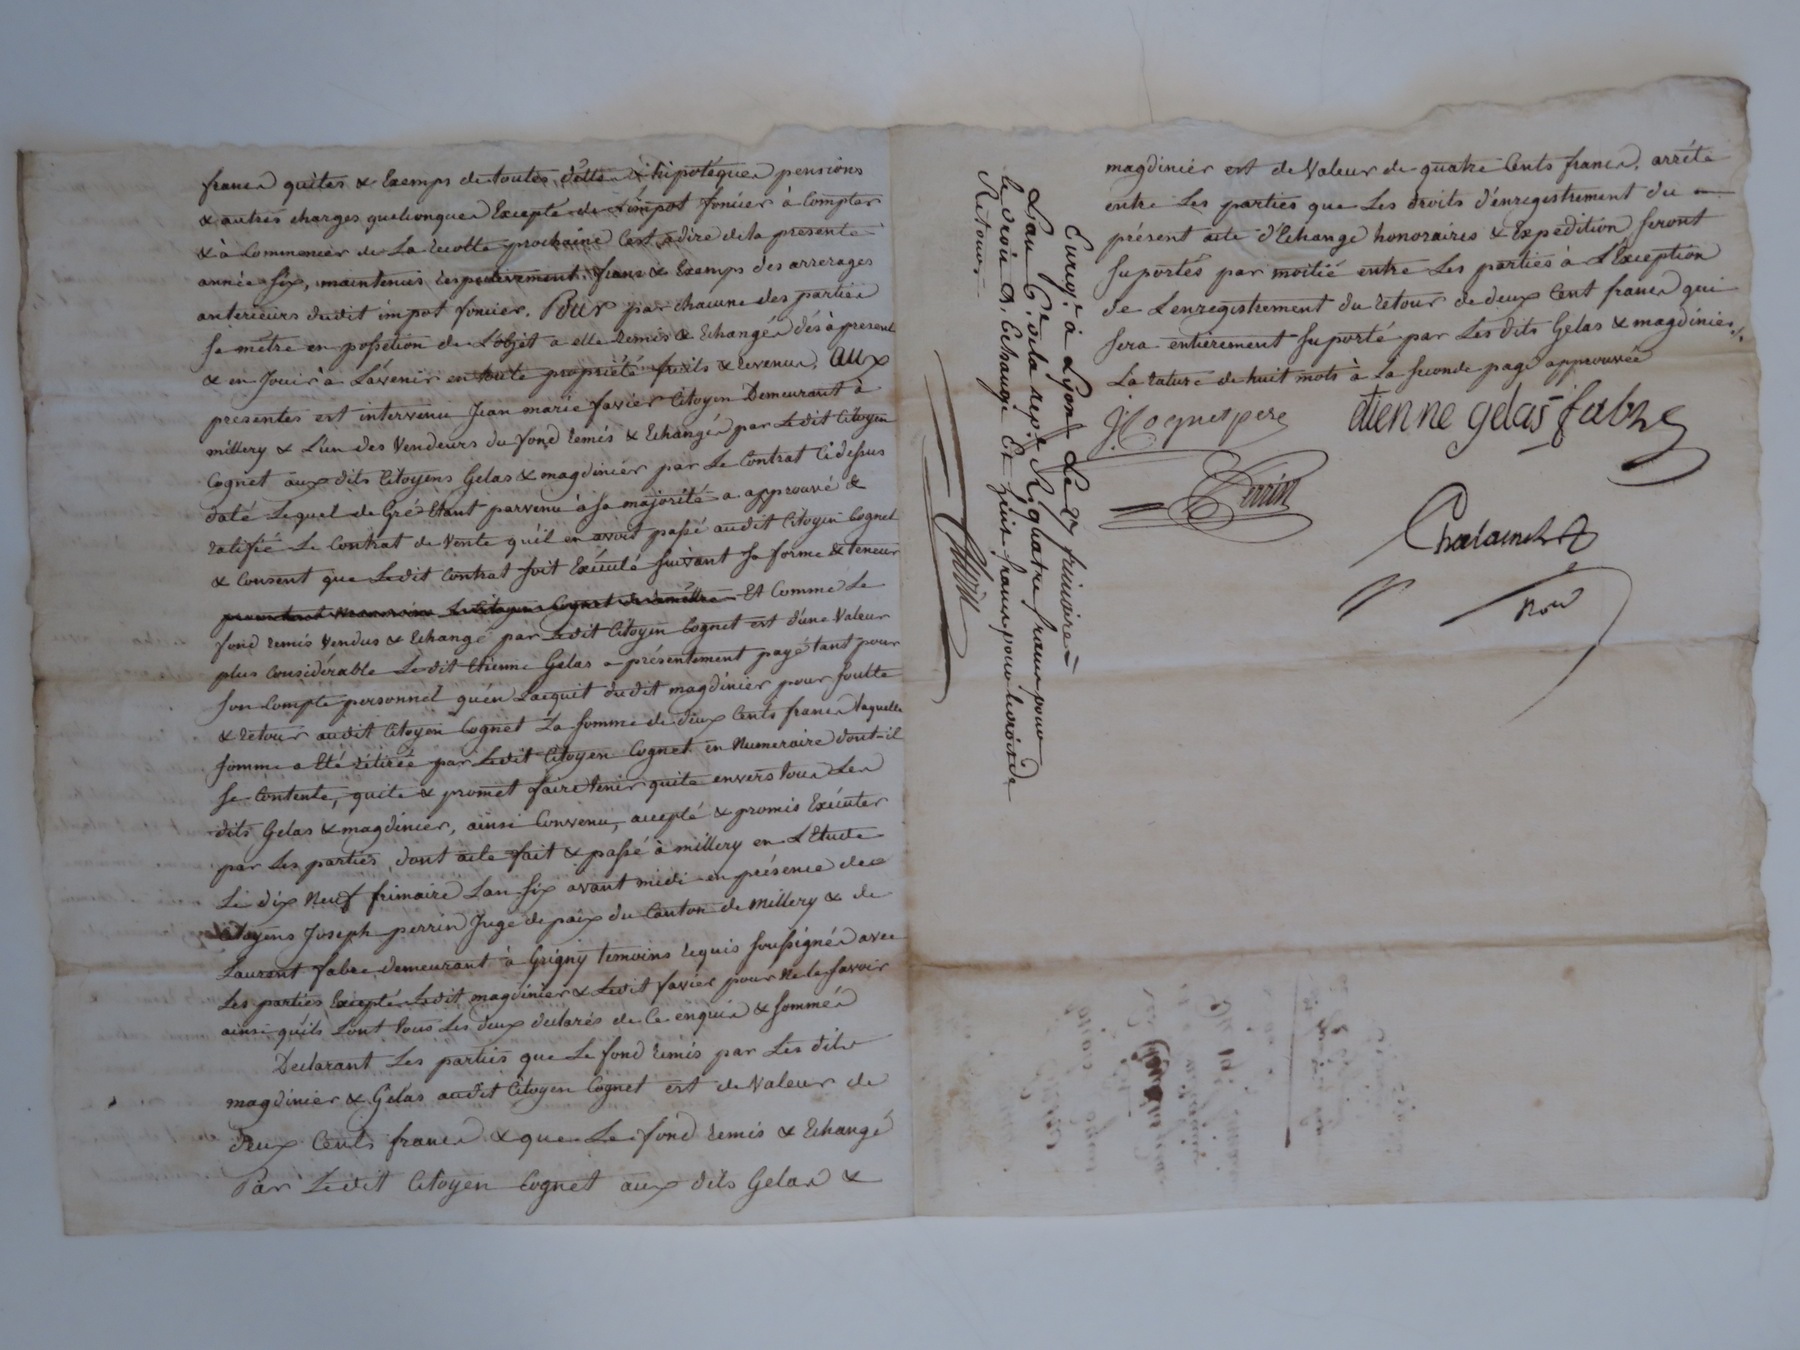 francs quites & Exemps de toutes dettes & hipotéques pensions
& autres charges quelconques Excepté de L'impot foncier à Compter
& à Commencer de La recolte prochaine C'est adire de la presente
année six, maintenus respectivement francs & Exemps des arrerages
anterieurs dudit impot foncier. Pour par chacune des parties
se mêtre en possétion de L'objet a elle remis & Echangés dés à present
& en Jouir à L'avenir en toute propriété fruits & revenus, aux
presentes est intervenu Jean marie favier Citoyen Demeurant à
millery & L'un des Vendeurs du fond remis & Echangés par Ledit Citoyen
Cognet aux dits Citoyens Gelas & magdinier par Le Contrat Cidessus
daté Lequel de Gré Etant parvenu à sa majorité a approuvé &
ratifié Le Contrat de Vente qu'il en avoit passé audit Citoyen Cognet
& Consent que Ledit Contrat soit Exécuté suivant sa forme & teneur
Le Citoyen Cognet Et Comme Le
fond remis Vendus & Echangé par Ledit Citoyen Cognet est d'une Valeur
plus Considérable Ledit Etienne Gelas a présentement payé tant pour
son Compte personnel qu'en L'acquit dudit magdinier pour soulte
& retour audit Citoyen Cognet La somme de deux Cents francs Laquelle
somme a Eté retirée par Ledit Citoyen Cognet en Numeraire dont-il
se Contente, quite & promet faire tenir quite envers tous Les
dits Gelas & magdinier, ainsi Convenu, accepté & promis Exécuter
par Les parties, dont acte fait & passé à millery en L'Etude
Le dix Neuf frimaire L'an six avant midi en présence des
Citoyens Joseph perrin Juge de paix du Canton de Millery & de
Laurent fabre demeurant à Grigny temoins requis soussignés avec
Les parties Excepté Ledit magdinier & Ledit favier pour Ne le savoir
ainsi qu'ils L'ont tous Les deux declarés de Ce enquis & sommés
Declarant Les parties que Le fond remis par Les dits
magdinier & Gelas audit Citoyen Cognet est de Valeur de
deux Cents francs & que Le fond remis & Echangé
Par Ledit Citoyen Cognet aux dits Gelas &
Enreg.t à Lyon Le 27 frimaire
L'an 6.e de la rep.e R quatre francs pour
le droit d'Echange Et huit francs pour le droit de
Retour
magdinier est de Valeur de quatre Cents francs. arrêté
entre Les parties que Les droits d'enregistrement du
présent acte d'Echange honoraires & Expedition seront
suportés par moitié entre Les parties à L'Exception
de L'enregistrement du retour de deux Cent francs qui
sera entierement suporté par Les dits Gelas & magdinier
La rature de huit mots à La seconde page approuvée
J Cognet pere
étienne gelas fabre
Perrin